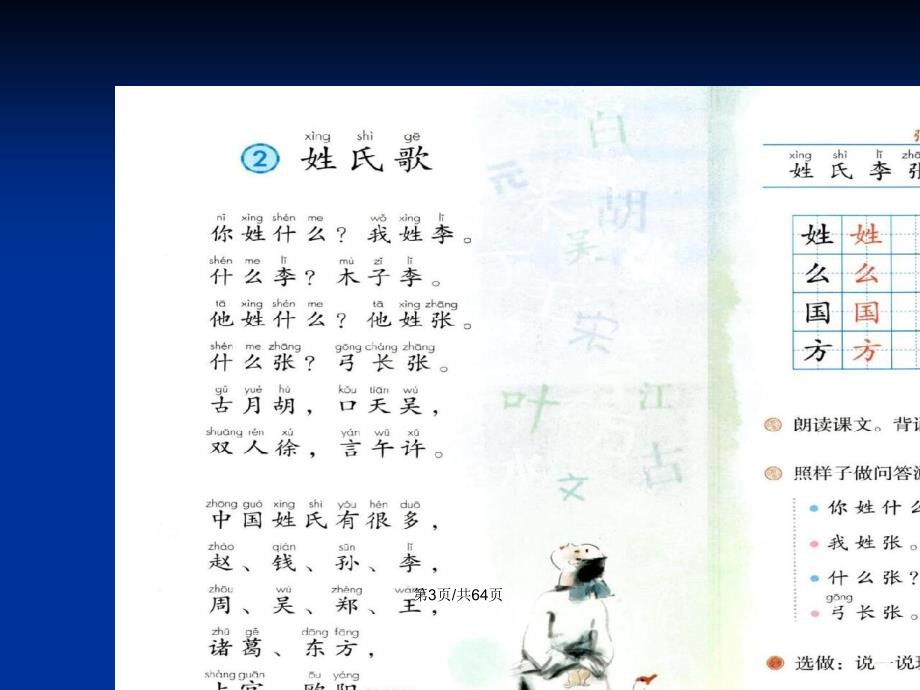 xìng shì gē
2 姓氏歌
nǐ xìng shén me wǒ xìng lǐ
你姓什么？我姓李。
shén me lǐ mù zǐ lǐ
什么李？木子李。
tā xìng shén me tā xìng zhāng
他姓什么？他姓张。
shén me zhāng gōng cháng zhāng
什么张？弓长张。
gǔ yuè hú kǒu tiān wú
古月胡，口天吴，
shuāng rén xú yán wǔ xǔ
双人徐，言午许。
zhōng guó xìng shì yǒu hěn duō
中国姓氏有很多，
zhào qián sūn lǐ
赵、钱、孙、李，
zhōu wú zhèng wáng
周、吴、郑、王，
zhū gě dōng fāng
诸葛、东方，
shàng guān ōu yáng
上官、欧阳
百
元
胡
吴
叶
江
古
文
第3页/共64页
xìng shì lǐ zhā
姓氏李张
姓姓
么么
国国
方方
朗读课文。背
照样子做问答
你姓什么
我姓张。
什么张？
gōng
弓长张。
选做：说一说